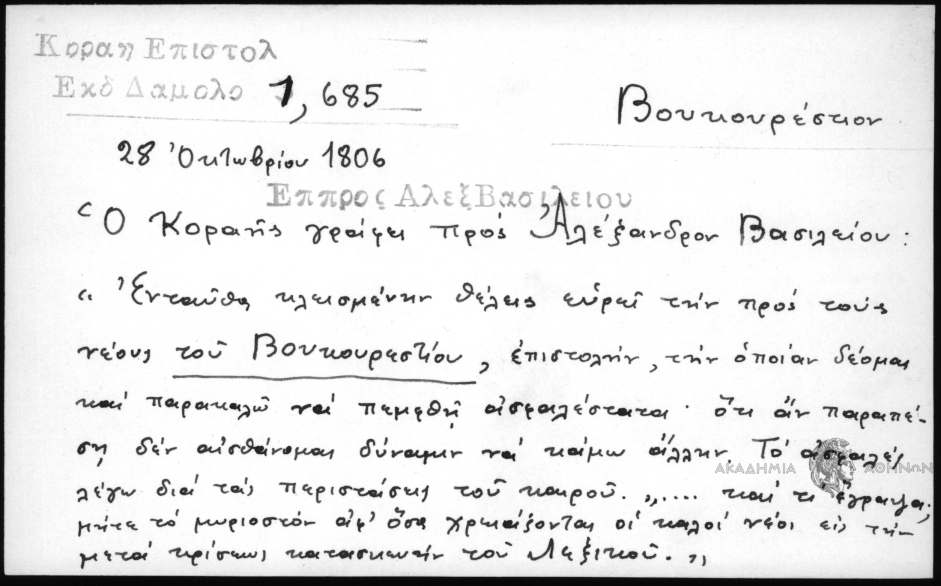 Κοραη Επιστολ
Εκδ Δαμαλα 1, 685
Βουκουρέστιον
28 Ὀκτωβρίου 1806
Επ προς Αλεξ Βασιλειου
Ὁ Κοραῆς γράφει πρός Ἀλέξανδρον Βασιλείου:
"Ἐνταῦθα κλεισμένην θέλεις εὑρεῖ τήν πρός τούς
νέους τοῦ Βουκουρεστίου, ἐπιστολήν, τήν ὁποίαν δέομαι
καί παρακαλῶ νά πεμφθῇ ἀσφαλέστατα· ὅτι ἄν παραπέ-
σῃ δέν αἰσθάνομαι δύναμιν νά κάμω ἄλλην. Τό ἀσφαλές
ΑΚΑΔΗΜΙΑ ΑΘΗΝΩΝ
λέγω διά τάς περιστάσεις τοῦ καιροῦ. „.... καί τι ἔγραψα;
μήτε τό μυριοστόν ἀφ' ὅσα χρειάζονται οἱ καλοί νέοι εἰς τήν
μετά κρίσεως κατασκευήν τοῦ Λεξικοῦ. „